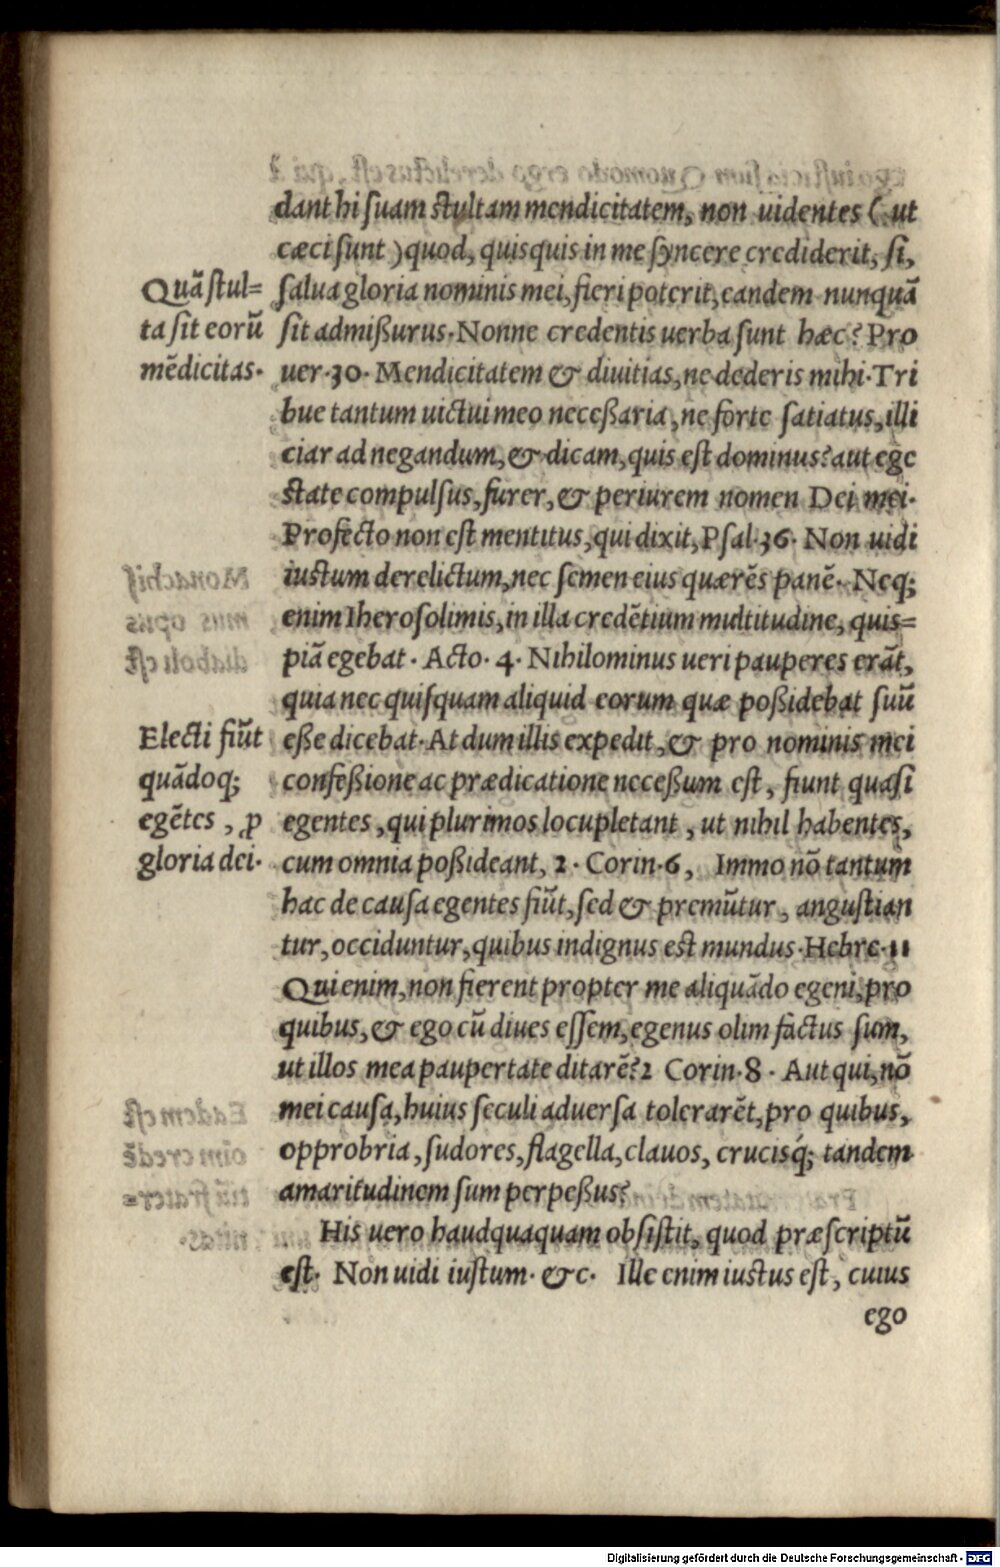 dant hi suam stultam mendicitatem, non uidentes ( ut
cæci sunt ) quod, quisquis in me syncere crediderit, si,
Quã stul=
ta sit eorũ
mẽdicitas.
salua gloria nominis mei, fieri poterit, eandem nunquã
sit admißurus. Nonne credentis uerba sunt hæc? Pro
uer. 30. Mendicitatem & diuitias, ne dederis mihi. Tri
bue tantum uictui meo neceßaria, ne forte satiatus, illi
ciar ad negandum, & dicam, quis est dominus? aut ege
state compulsus, furer, & periurem nomen Dei mei.
Profecto non est mentitus, qui dixit, Psal. 36. Non uidi
iustum derelictum, nec semen eius quærẽs panẽ. Neq;
enim Iherosolimis, in illa credẽtium multitudine, quis=
piã egebat. Acto. 4. Nihilominus ueri pauperes erãt,
quia nec quisquam aliquid eorum quæ poßidebat suũ
Electi fiũt
quãdoq;
egẽtes, ꝓ
gloria dei.
eße dicebat. At dum illis expedit, & pro nominis mei
confeßione ac prædicatione neceßum est, fiunt quasi
egentes, qui plurimos locupletant, ut nihil habentes,
cum omnia poßideant, 2. Corin. 6, Immo nõ tantum
hac de causa egentes fiũt, sed & premũtur, angustian
tur, occiduntur, quibus indignus est mundus. Hebre. 11
Qui enim, non fierent propter me aliquãdo egeni, pro
quibus, & ego cũ diues essem, egenus olim factus sum,
ut illos mea paupertate ditarẽ? 2 Corin. 8. Aut qui, nõ
mei causa, huius seculi aduersa tolerarẽt, pro quibus,
opprobria, sudores, flagella, clauos, crucisq́; tandem
amaritudinem sum perpeßus?
His uero haudquaquam obsistit, quod præscriptũ
est. Non uidi iustum. &c. Ille enim iustus est, cuius
ego
Digitalisierung gefördert durch die Deutsche Forschungsgemeinschaft - DFG